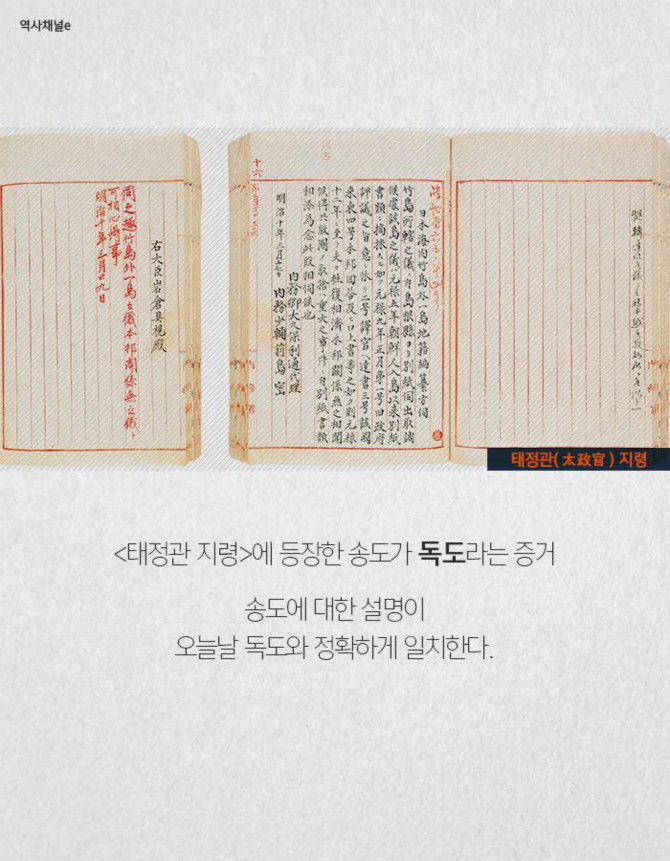 역사채널e
日本海内竹島外一島地籍編纂方伺
竹島所轄之儀ニ付島根縣ヨリ別紙伺出取調
候處該島之儀ハ元禄五年朝鮮人入島以来別紙
書類ニ摘採スル如ク元禄九年正月第一号旧政府
評議之旨意ニ依リ二号譯官ヘ達書三号該國
来柬四号本邦回答及ヒ口上書等之如ク則元禄
十二年ニ至リ夫々往復相濟本邦關係無之相聞
候得共版圖ノ取捨ハ重大之事件ニ付別紙書類
相添為念此段相伺候也
明治十年三月十七日
内務卿大久保利通代理
内務少輔前島密
右大臣岩倉具視殿
伺之趣竹島外一島之儀本邦関係無之儀ト
可相心得事
明治十年三月廿九日
태정관(太政官) 지령
<태정관 지령>에 등장한 송도가 독도라는 증거
송도에 대한 설명이
오늘날 독도와 정확하게 일치한다.